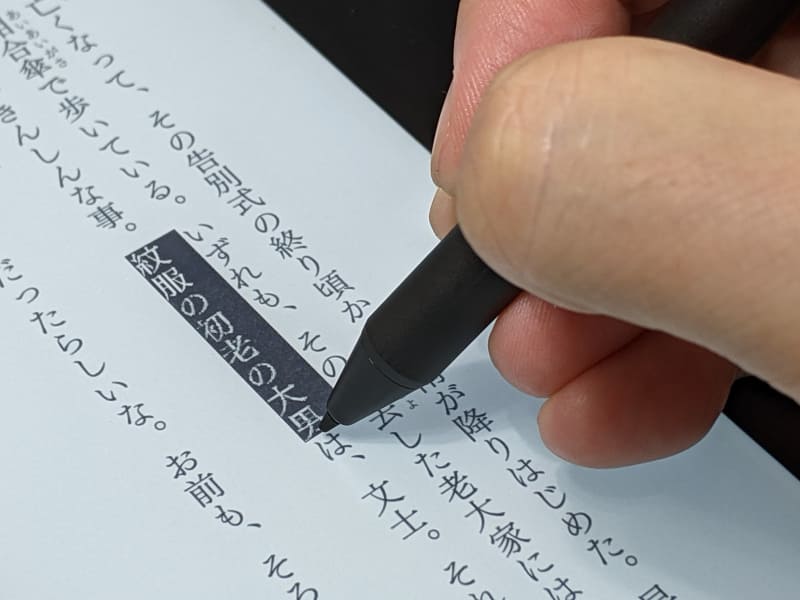 亡くなって、その告別式の終り頃か が降りはじめた。
相合傘で歩いている。いずれも、その 去した老大家には
きんしんな事。紋服の初老の大男は、文士。それ
だったらしいな。お前も、そろ